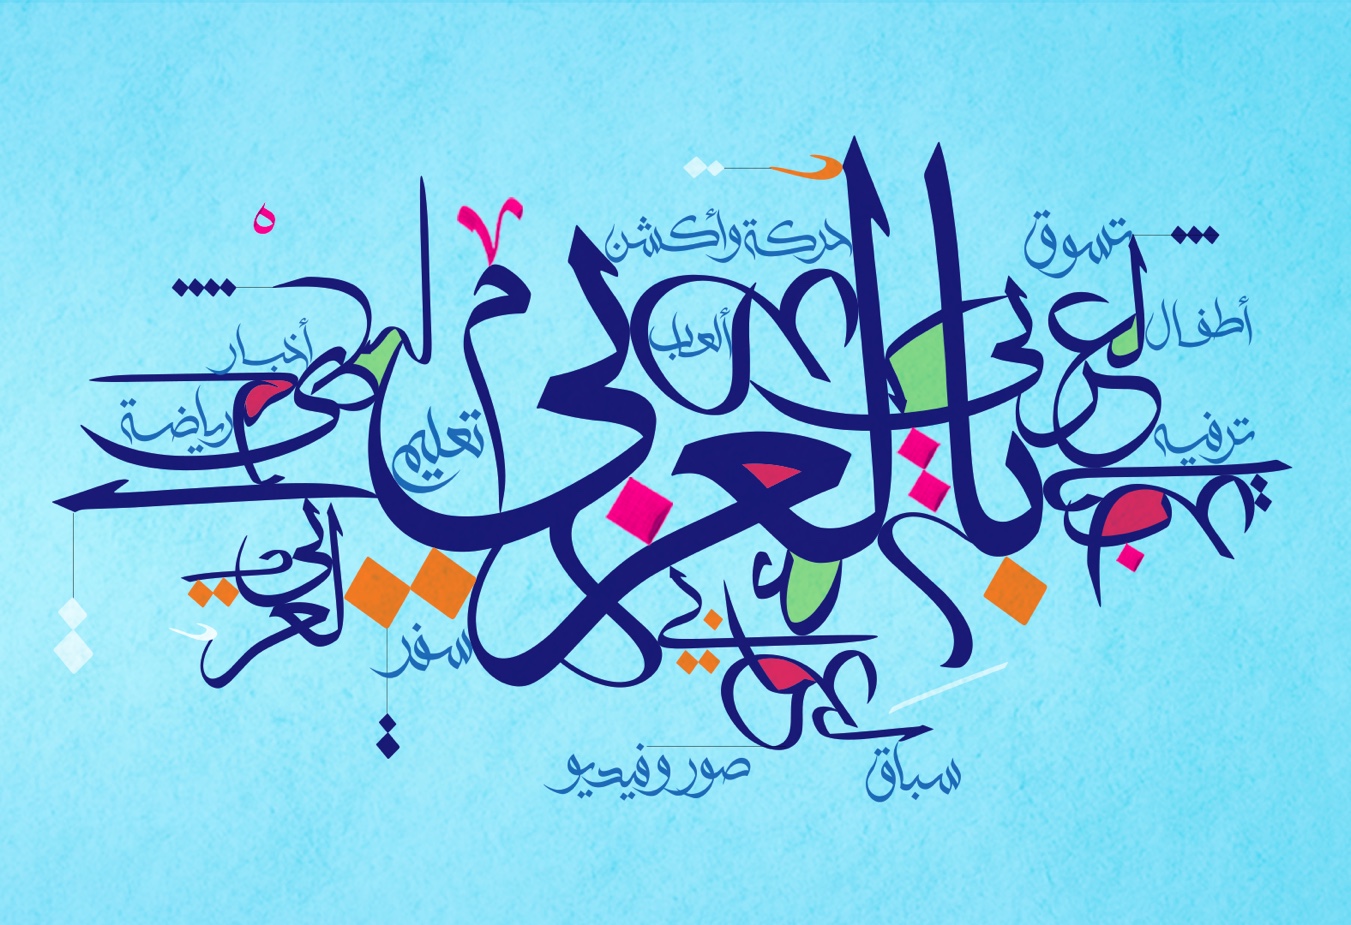 حركة وأكشن
تسوق
أطفال
ألعاب
أخبار
رياضة
تعليم
ترفيه
بالعربي
العربي
سفر
صور وفيديو
سباق